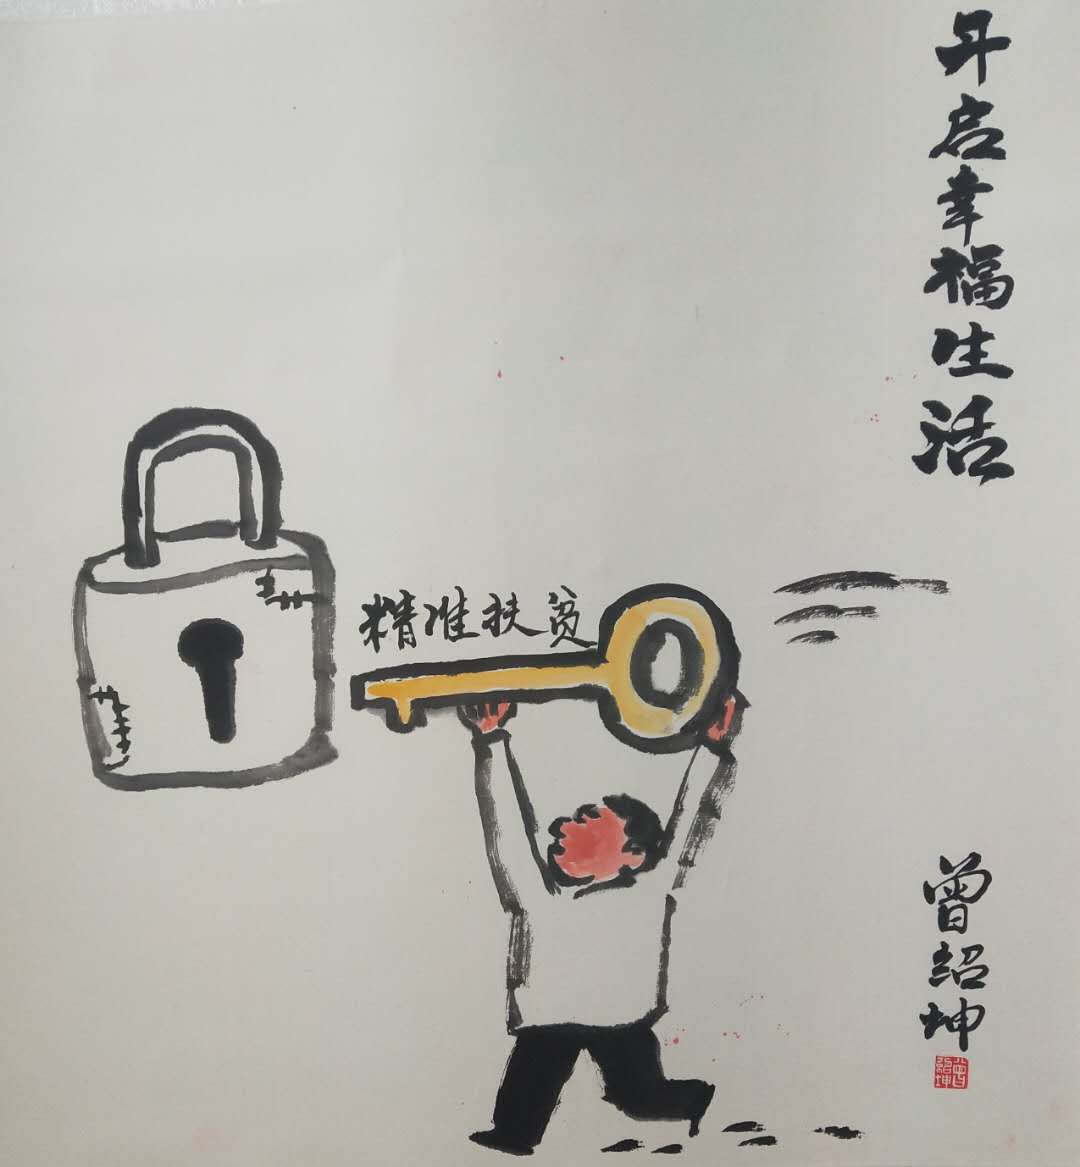 开启幸福生活
精准扶贫
曾绍坤
曾绍坤